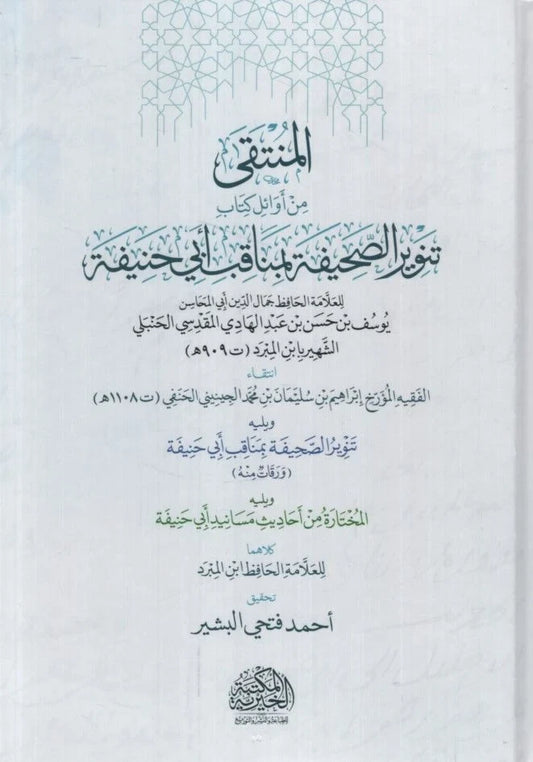 المُنْتَقَى
مِنْ أَوَائِلِ كِتَابِ
تَنْوِيرِ الصَّحِيفَةِ بِمَنَاقِبِ أَبِي حَنِيفَةَ
لِلعَلَّامَةِ الحَافِظِ جَمَالِ الدِّينِ أَبِي المَحَاسِنِ
يُوسُفَ بْنِ حَسَنِ بْنِ عَبْدِ الهَادِي المَقْدِسِيِّ الحَنْبَلِيِّ
الشَّهِيرِ بِابْنِ المِبْرَدِ (ت ٩٠٩ هـ)
انتقاء
الفَقِيهِ المُؤَرِّخِ إِبْرَاهِيمَ بْنِ سُلَيْمَانَ بْنِ مُحَمَّدٍ الجِينِينِيِّ الحَنَفِيِّ (ت ١١٠٨ هـ)
ويليه
تَنْوِيرُ الصَّحِيفَةِ بِمَنَاقِبِ أَبِي حَنِيفَةَ
(وَرَقَاتٌ مِنْهُ)
ويليه
المُخْتَارَةُ مِنْ أَحَادِيثِ مَسَانِيدِ أَبِي حَنِيفَةَ
كلاهما
لِلعَلَّامَةِ الحَافِظِ ابْنِ المِبْرَدِ
تحقيق
أحمد فتحي البشير
المكتبة الخيرية
للطباعة والنشر والتوزيع